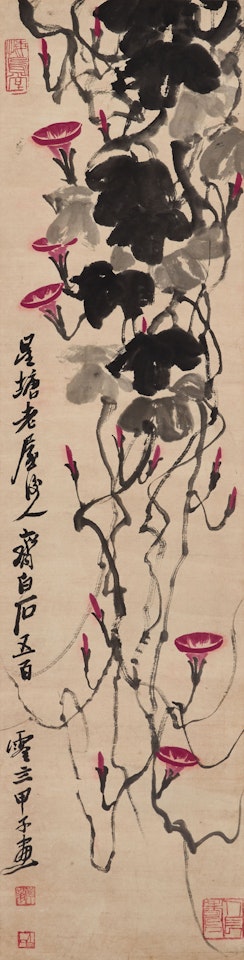 星塘老屋後人齊白石五百
零三甲子畫